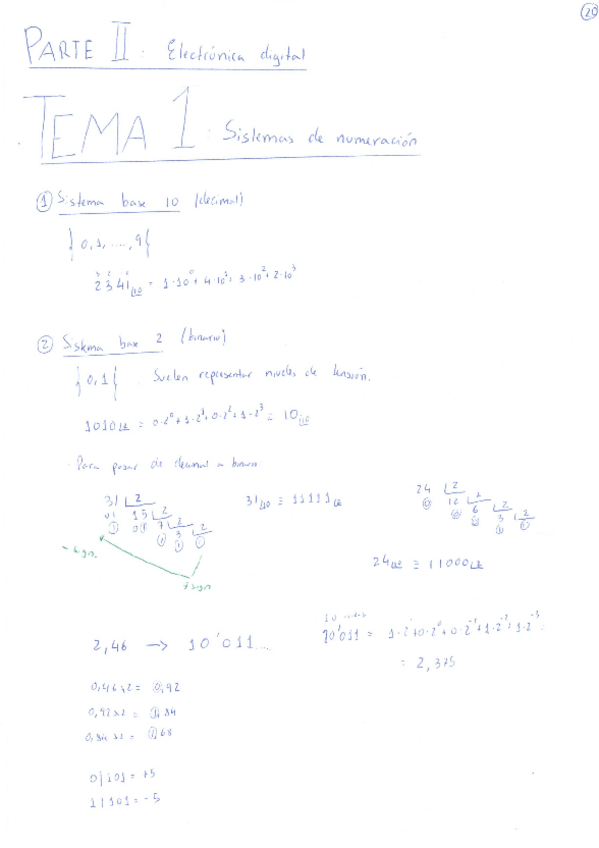 20
PARTE II : Electrónica digital
TEMA 1 : Sistemas de numeración
① Sistema base 10 (decimal)
}0,1,...,9{
2341₍₁₀ = 1·10⁰ + 4·10¹ + 3·10² + 2·10³
② Sistema base 2 (binario)
}0,1{ Suelen representar niveles de tensión.
1010₍₂ = 0·2⁰ + 1·2¹ + 0·2² + 1·2³ = 10₍₁₀
· Para pasar de decimal a binario
31 2
01 15 2
7 2
3 2
31₍₁₀ ≡ 11111₍₂
24 2
12 2
6 2
3 2
- sign.
+ sign
24₍₁₀ ≡ 11000₍₂
2,46 → 10'011...
10'011 = 1·2¹+0·2⁰+0·2⁻¹+1·2⁻²+1·2⁻³
= 2,375
0,46x2 = 0,92
0,92x2 = 1,84
0,84x2 = 1,68
0|101 = +5
1|101 = -5